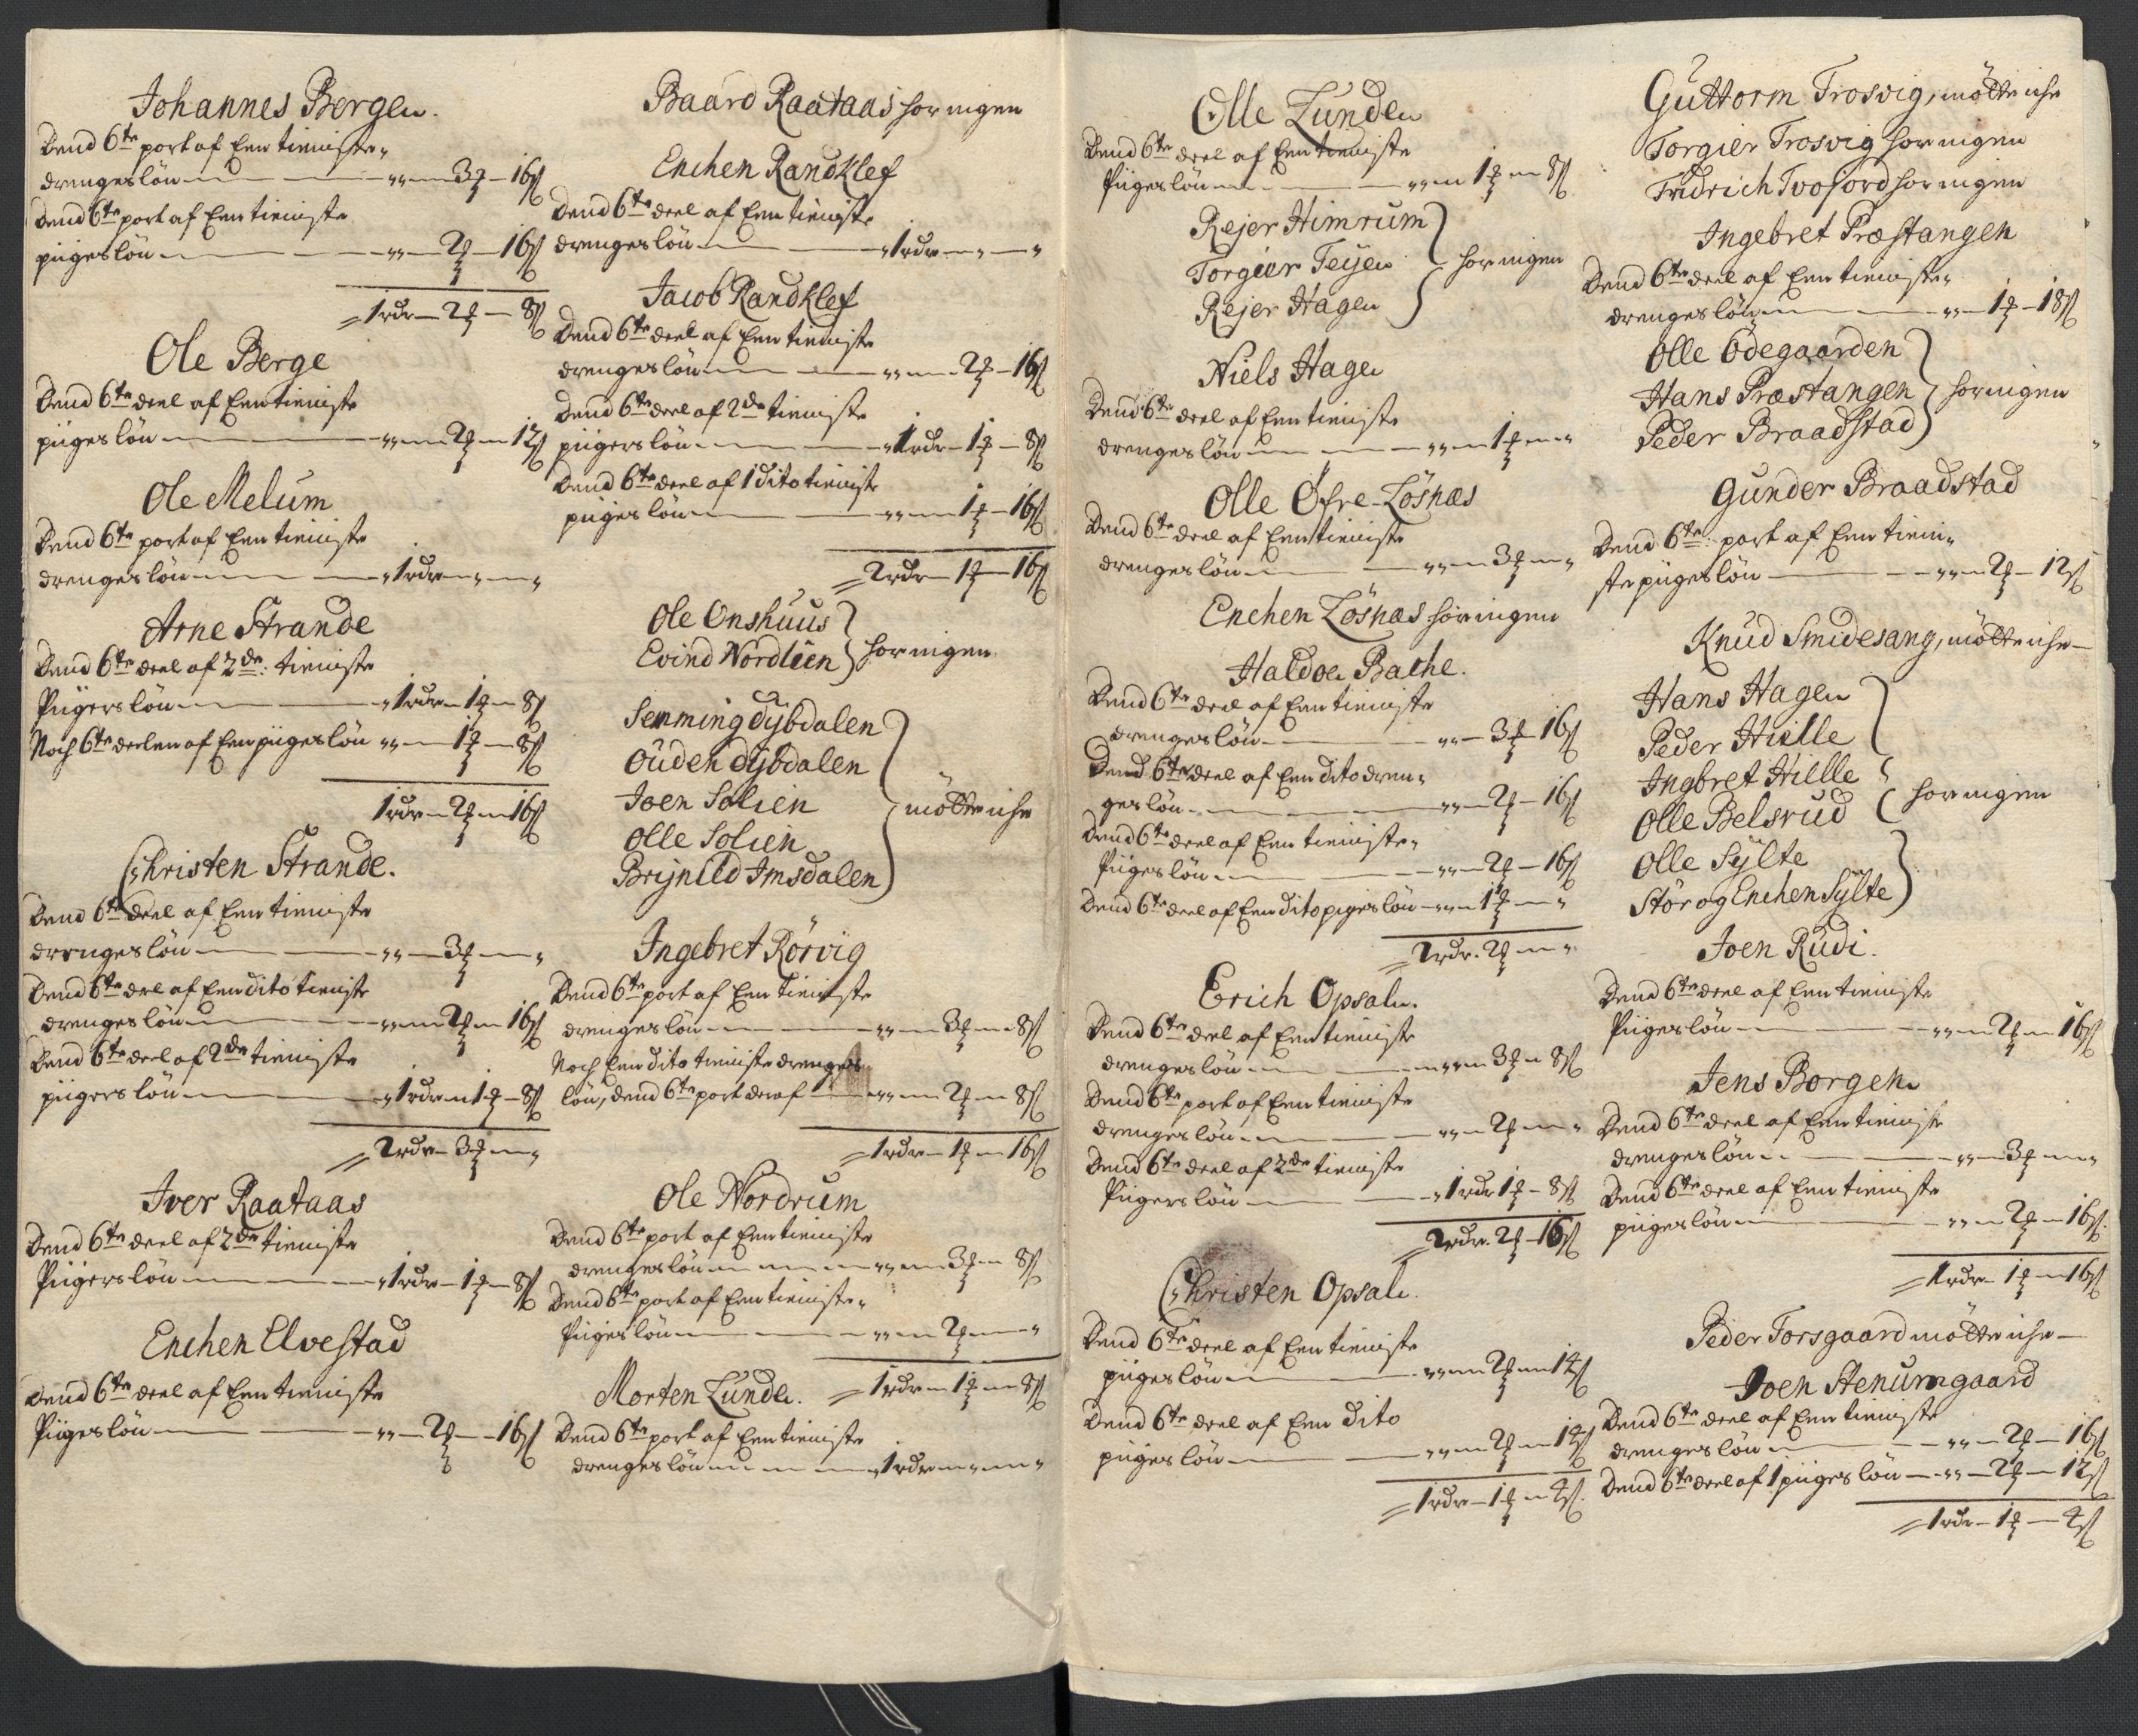 Johannes Bergen.
Dend 6te part af Een tieniste
drenges lön — " — 3 ₰ — 16 ß
Dend 6te part af Een tieniste
piiges lön — " — 2 ₰ — 16 ß
1 rdr — 2 ₰ — 8 ß
Ole Berge
Dend 6te deel af Een tieniste
piiges lön — " — 2 ₰ — 12 ß
Ole Melum
Dend 6te part af Een tieniste
drenges lön — 1 rdr — " — "
Arne Strande
Dend 6te deel af 2de: tieniste
Piigers lön — 1 rdr — 1 ₰ — 8 ß
Noch 6te deelen af Een piiges lön " — 1 ₰ — 8 ß
1 rdr — 2 ₰ — 16 ß
Christen Strande.
Dend 6te deel af Een tieniste
drenges lön — " — 3 ₰ — "
Dend 6te deel af Een dito tieniste
drenges lön — " — 2 ₰ — 16 ß
Dend 6te deel af 2de tieniste
piigers lön — 1 rdr — 1 ₰ — 8 ß
2 rdr — 3 ₰ — "
Iver Raataas
Dend 6te deel af 2de tieniste
Piigers lön — 1 rdr — 1 ₰ — 8 ß
Enchen Elvestad
Dend 6te deel af Een tieniste
Piiges lön — " — 2 ₰ — 16 ß
Baard Raataas har ingen
Enchen Randklef
Dend 6te deel af Een tieniste
drenges lön — 1 rdr — " — "
Jacob Randklef
Dend 6te deel af Een tieniste
drenges lön — " — 2 ₰ — 16 ß
Dend 6te deel af 2de tieniste
piigers lön — 1 rdr — 1 ₰ — 8 ß
Dend 6te deel af 1 dito tieniste
piiges lön — " — 1 ₰ — 16 ß
2 rdr — 1 ₰ — 16 ß
Ole Onshuus
Evind Nordlien } har ingen
Semming dybdalen
Ouden dybdalen
Joen Solien } mötte iche
Olle Solien
Brynild Imsdalen
Ingebret Rörvig
Dend 6te part af Een tieniste
drenges lön — " — 3 ₰ — 8 ß
Noch Een dito tieniste drenges
lön, dend 6te part deraf — " — 2 ₰ — 8 ß
1 rdr — 1 ₰ — 16 ß
Ole Nordrum
Dend 6te part af Een tieniste
drenges lön — " — 3 ₰ — 8 ß
Dend 6te part af Een tieniste
Piiges lön — " — 2 ₰ — "
1 rdr — 1 ₰ — 8 ß
Morten Lunde.
Dend 6te part af Een tieniste
drenges lön — 1 rdr — " — "
Olle Lunden
Dend 6te deel af Een tieniste
Piiges lön — " — 1 ₰ — 8 ß
Rejer Himrum
Torgier Teijen } har ingen
Rejer Hagen
Niels Hagen
Dend 6te deel af Een tieniste
drenges lön — " — 1 ₰ — "
Olle Öfre-Lösnæs
Dend 6te deel af Een tieniste
drenges lön — " — 3 ₰ — "
Enchen Lösnæs har ingen
Haldoe Bache.
Dend 6te deel af Een tieniste
drenges lön — " — 3 ₰ — 16 ß
Dend 6te deel af Een dito dren-
ges lön — " — 2 ₰ — 16 ß
Dend 6te deel af Een tieniste
Piiges lön — " — 2 ₰ — 16 ß
Dend 6te deel af Een dito piges lön — " — 1 ₰ — "
2 rdr. 2 ₰ — "
Erich Opsale.
Dend 6te deel af Een tieniste
drenges lön — " — 3 ₰ — 8 ß
Dend 6te part af Een tieniste
drenges lön — " — 2 ₰ — "
Dend 6te deel af 2de tieniste
Piigers lön — 1 rdr 1 ₰ — 8 ß
2 rdr. 2 ₰ — 16 ß
Christen Opsale.
Dend 6te deel af Een tieniste
piiges lön — " — 2 ₰ — 14 ß
Dend 6te deel af Een dito
piiges lön — " — 2 ₰ — 14 ß
1 rdr — 1 ₰ — 4 ß
Guttorm Trosvig, mötte iche
Torgier Trosvig har ingen
Fridrich Tvofjord har ingen
Ingebret Præstangen
Dend 6te deel af Een tieniste
drenges lön — " — 1 ₰ — 18 ß
Olle Ödegaarden
Hans Præstangen } har ingen
Peder Braadstad
Gunder Braadstad
Dend 6te: part af Een tieni-
ste piiges lön — " — 2 ₰ — 12 ß
Knud Smidesang, mötte iche —
Hans Hagen
Peder Hille
Ingbret Hille
Olle Belsrud } har ingen
Olle Sylte
Stör og Enchen Sylte
Joen Rudi.
Dend 6te deel af Een tieniste
Piiges lön — " — 2 ₰ — 16 ß
Jens Borgen
Dend 6te deel af Een tieniste
drenges lön — " — 3 ₰ — "
Dend 6te deel af Een tieniste
piiges lön — " — 2 ₰ — 16 ß
1 rdr — 1 ₰ — 16 ß
Peder Forsgaard mötte iche —
Joen Stenumgaard
Dend 6te deel af Een tieniste
drenges lön — " — 2 ₰ — 16 ß
Dend 6te deel af 1 piiges lön — " — 2 ₰ — 12 ß
1 rdr — 1 ₰ — 4 ß